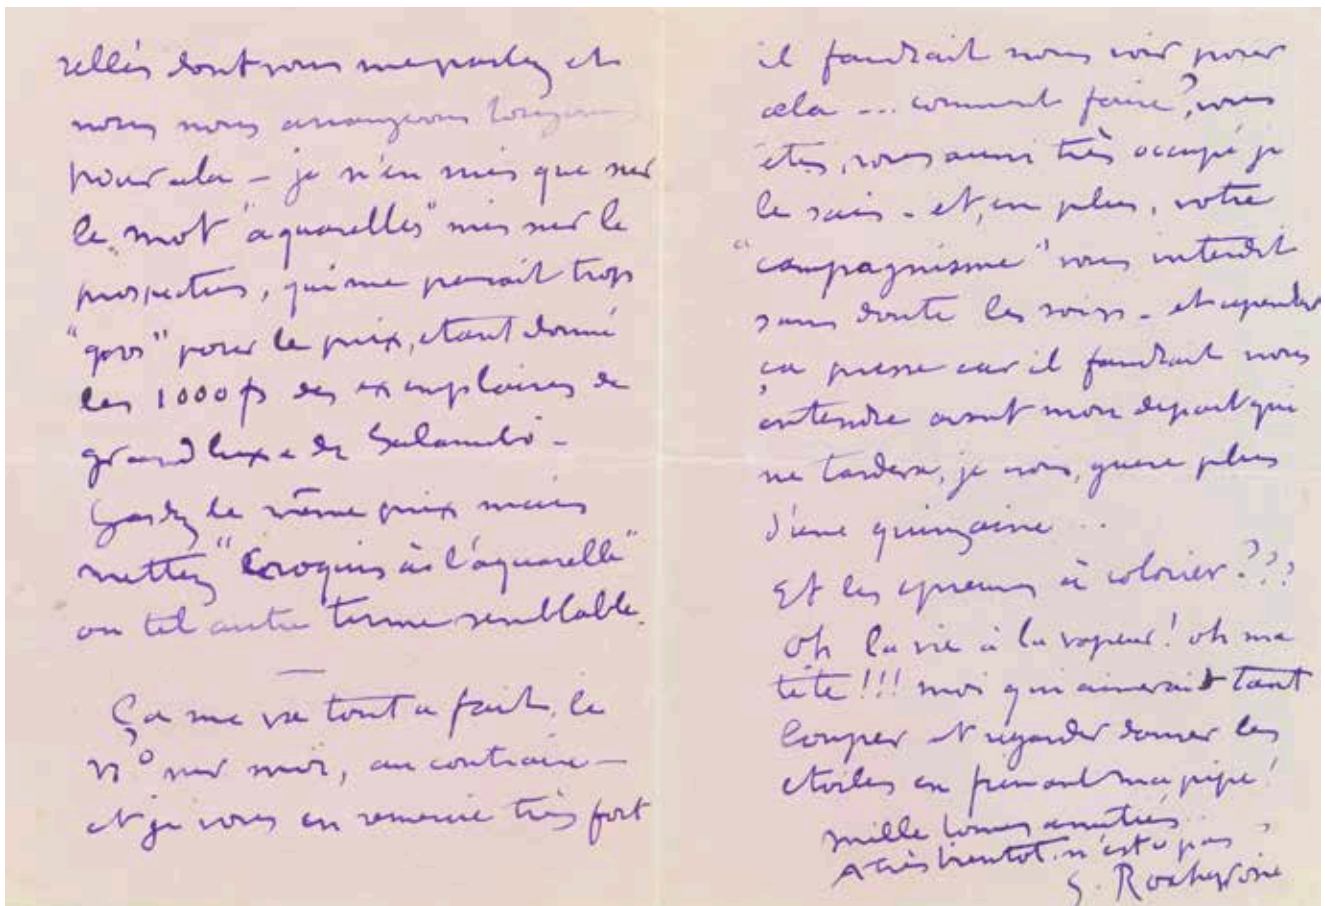 relles dont vous me parlez et
nous nous arrangerons toujours
pour cela – je n'en suis que sur
le mot "aquarelles" mis sur le
prospectus, qui me parait trop
"gros" pour le prix, étant donné
les 1000 fs des exemplaires de
grand luxe de Salambô –
Gardez le même prix mais
mettez "Croquis à l'aquarelle"
ou tel autre terme semblable.
Ça me va tout a fait, le
n° sur moi, au contraire –
et je vous en remercie très fort
il faudrait nous voir pour
cela ... comment faire? vous
êtes, vous aussi très occupé je
le sais – et, en plus, votre
"campagnisme" vous interdit
sans doute les soirs – et cependant
ça presse car il faudrait nous
entendre avant mon depart qui
ne tardera, je crois, guere plus
d'une quinzaine ...
Et les epreuves à colorier???
Oh la vie à la vapeur! oh ma
tête!!! moi qui aimerais tant
louper et regarder danser les
etoiles en fumant ma pipe!
mille bonnes amitiés
A très bientot. n'est ce pas
G. Rochegrosse